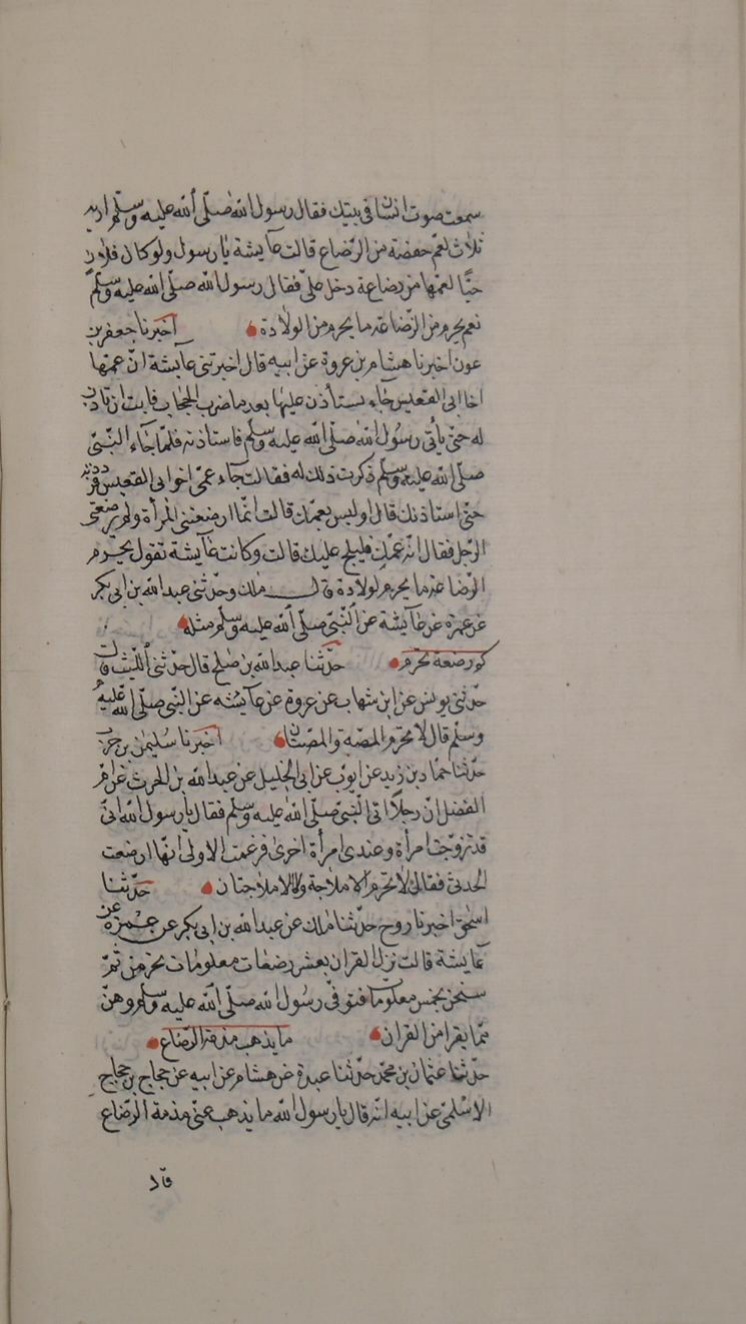 سمعت صوت انسان في بيتك فقال رسول الله صلّى الله عليه وسلّم اراه
فلان لعمّ حفصة من الرّضاع قالت عايشة يا رسول ولو كان فلان
حيًا لعمّها من رضاعة دخل عليّ فقال رسول الله صلّى الله عليه وسلّم
نعم يحرم من الرّضاعة ما يحرم من الولادة اخبرنا جعفر بن
عون اخبرنا هشام بن عروة عن ابيه قال اخبرتني عايشة انّ عمّها
اخا ابي القعيس جاء يستأذن عليها بعد ما ضرب الحجاب فابت ان تاذن
له حتّى يأتي رسول الله صلّى الله عليه وسلّم فاستاذنه فلمّا جاء النّبيّ
صلّى الله عليه وسلّم ذكرت ذلك له فقالت جاء عمّي اخو ابي القعيس فرددته
حتّى استاذنك قال اوليس بعمّك قالت انّما ارضعتني المرأة ولم يرضعني
الرّجل فقال انّه عمّك فليلج عليك قالت وكانت عايشة تقول يحرم
الرّضاعة ما يحرم لولادة قال ملك وحدّثني عبد الله بن ابي بكر
عن عمرة عن عايشة عن النّبيّ صلّى الله عليه وسلّم مثله
كم رضعة تحرم حدّثنا عبد الله بن صلح قال حدّثني اللّيث قال
حدّثني يونس عن ابن شهاب عن عروة عن عايشه عن النّبي صلّى الله عليه
وسلّم قال لا تحرم المصّة والمصّتان اخبرنا سليمن بن حرب
حدّثنا حمّاد بن زيد عن ايوب عن ابي الخليل عن عبد الله بن الحرث عن امّ
الفضل انّ رجلًا اتى النّبيّ صلّى الله عليه وسلّم فقال يا رسول الله انّي
قد تزوّجت امرأة وعندي امرأة اخرى فزعمت الاولى انّها ارضعت
الحدثى فقال لا تحرم الاملاجة ولا الاملاجتان حدّثنا
اسحق اخبرنا روح حدّثنا ملك عن عبد الله بن ابي بكر عن عمرة عن
عايشة قالت نزل القران بعشر رضعات معلومات يحرّمن ثمّ
نسخن بخمس معلوما فتوفّي رسول الله صلّى الله عليه وسلّم وهنّ
ممّا يقرا من القران ما يذهب مذمّة الرّضاع
حدّثنا عثمان بن محمّد حدّثنا عبدة عن هشام عن ابيه عن حجاج بن حجاج
الاسلميّ عن ابيه انّه قال يا رسول الله ما يذهب عنّي مذمة الرّضاع
قال